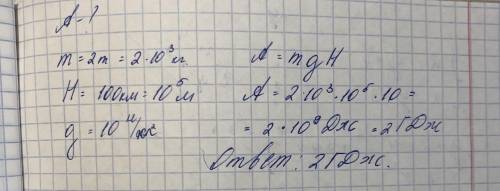 A - ?
m = 2т = 2·10³ кг
H = 100км = 10⁵ м
g = 10 м/с²
A = mgH
A = 2·10³·10⁵·10 =
= 2·10⁹ Дж = 2ГДж
Ответ: 2ГДж.